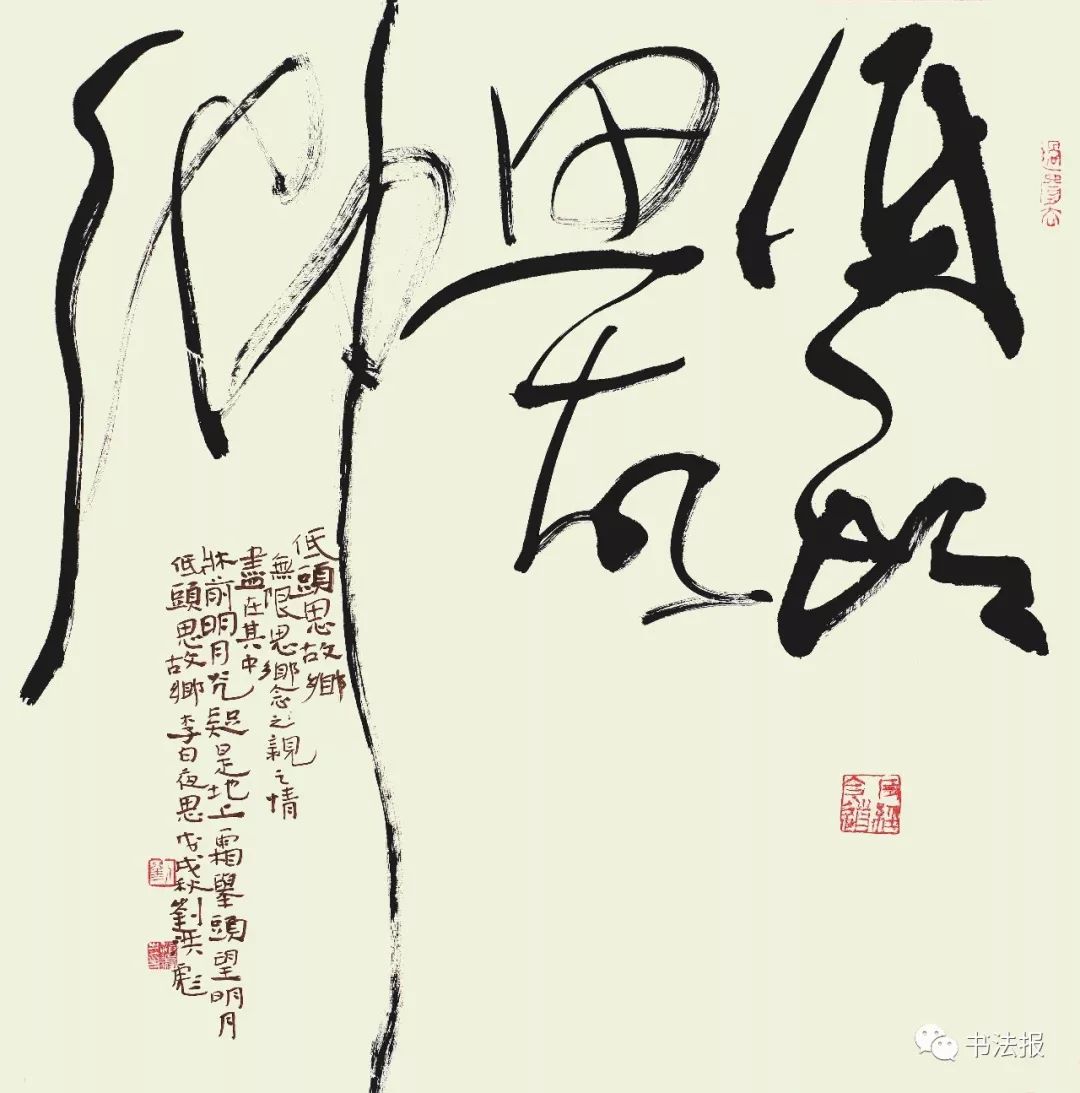 低頭
思故
鄉
低頭思故鄉
無限思鄉念之親之情
盡在其中
牀前明月光疑是地上霜舉頭望明月
低頭思故鄉李白夜思戊戌秋劉洪彪
劉
书法报